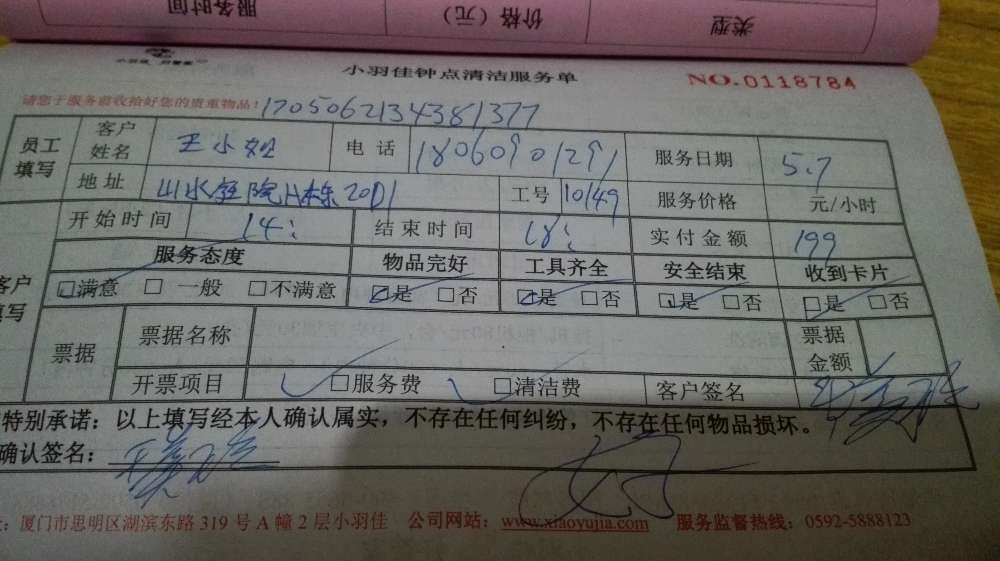 服务时间 价格（元） 类型
小羽佳钟点清洁服务单 NO.0118784
请您于服务前收拾好您的贵重物品！ 1705062134381377
员工填写 客户姓名 王小姐 电话 18060901291 服务日期 5.7
地址 山水庭院H栋20D1 工号 10149 服务价格 元/小时
开始时间 14: 结束时间 18: 实付金额 199
服务态度 物品完好 工具齐全 安全结束 收到卡片
客户填写 □满意 □一般 □不满意 □是 □否 □是 □否 □是 □否 □是 □否
票据 票据名称 票据金额
开票项目 □服务费 □清洁费 客户签名
特别承诺：以上填写经本人确认属实，不存在任何纠纷，不存在任何物品损坏。
确认签名：
：厦门市思明区湖滨东路 319 号 A 幢 2 层小羽佳 公司网站：www.xiaoyujia.com 服务监督热线：0592-5888123